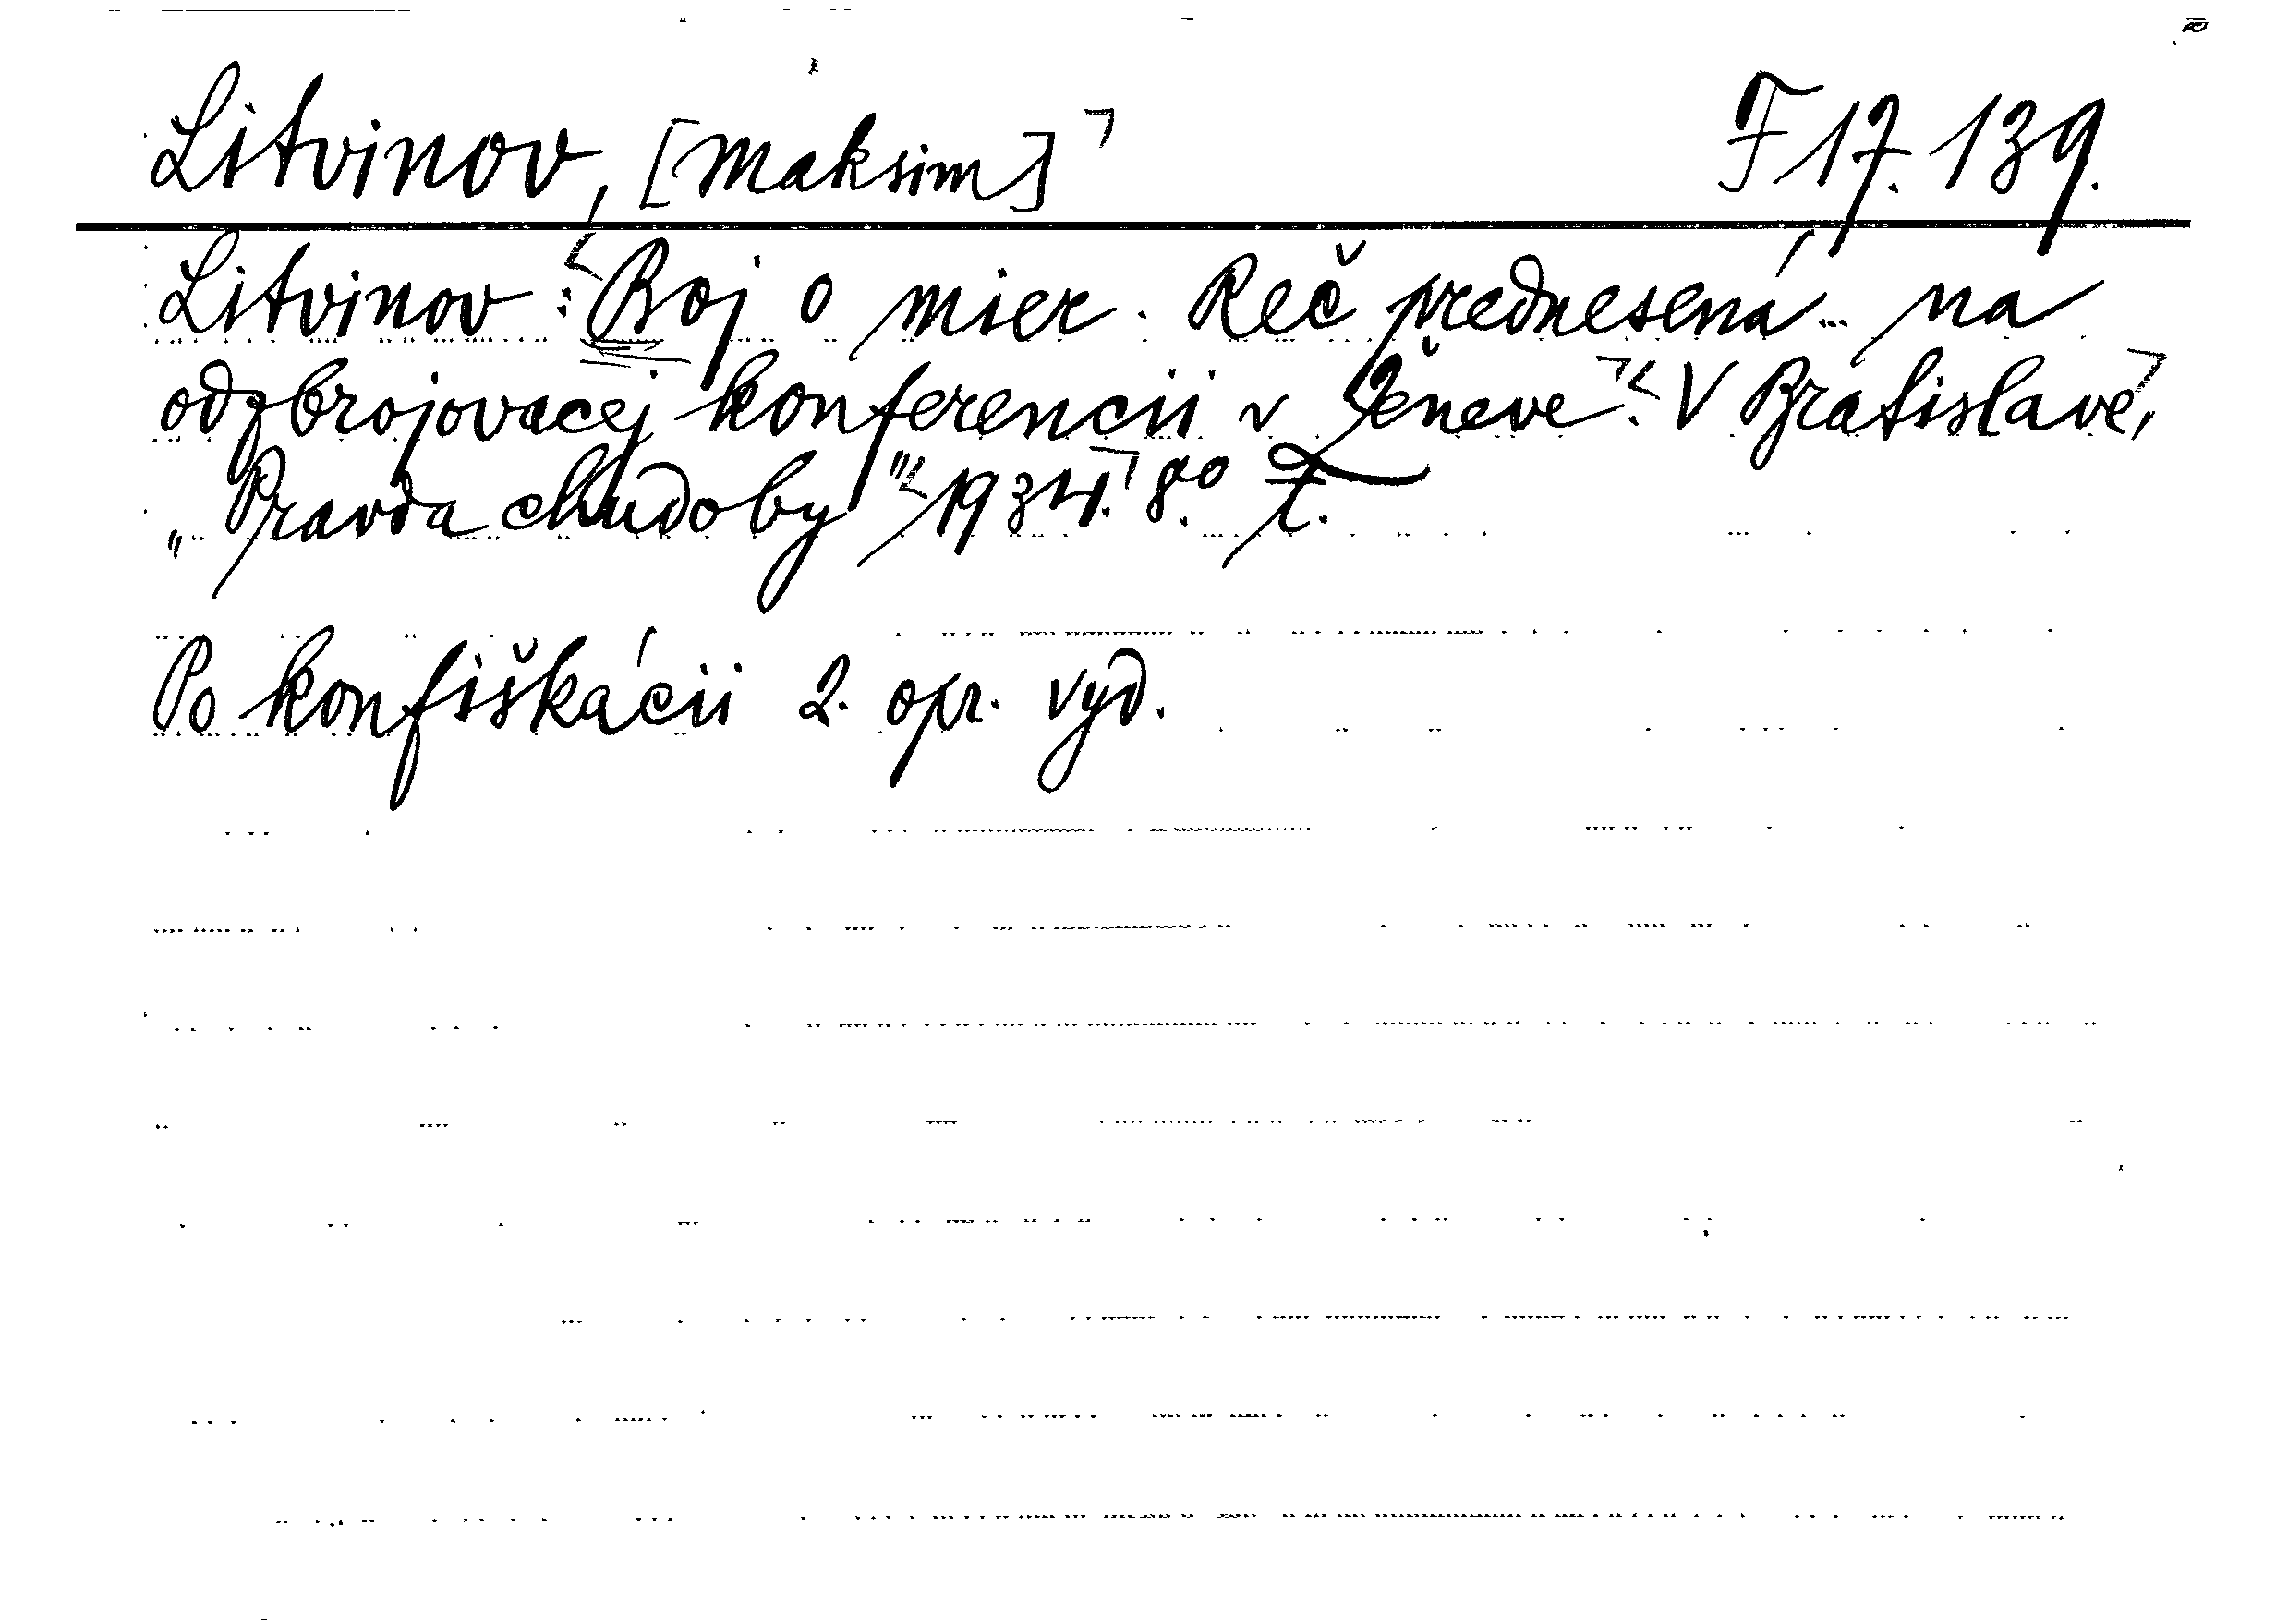 Litvinov, [Maksim] F 17.139.
Litvinov: Boj o mier. Reč prednesená... na
odzbrojovacej konferencii v Ženeve. V Bratislave,
„Pravda chudoby" 1934. 8.º
Po konfiškácii 2. opr. vyd.